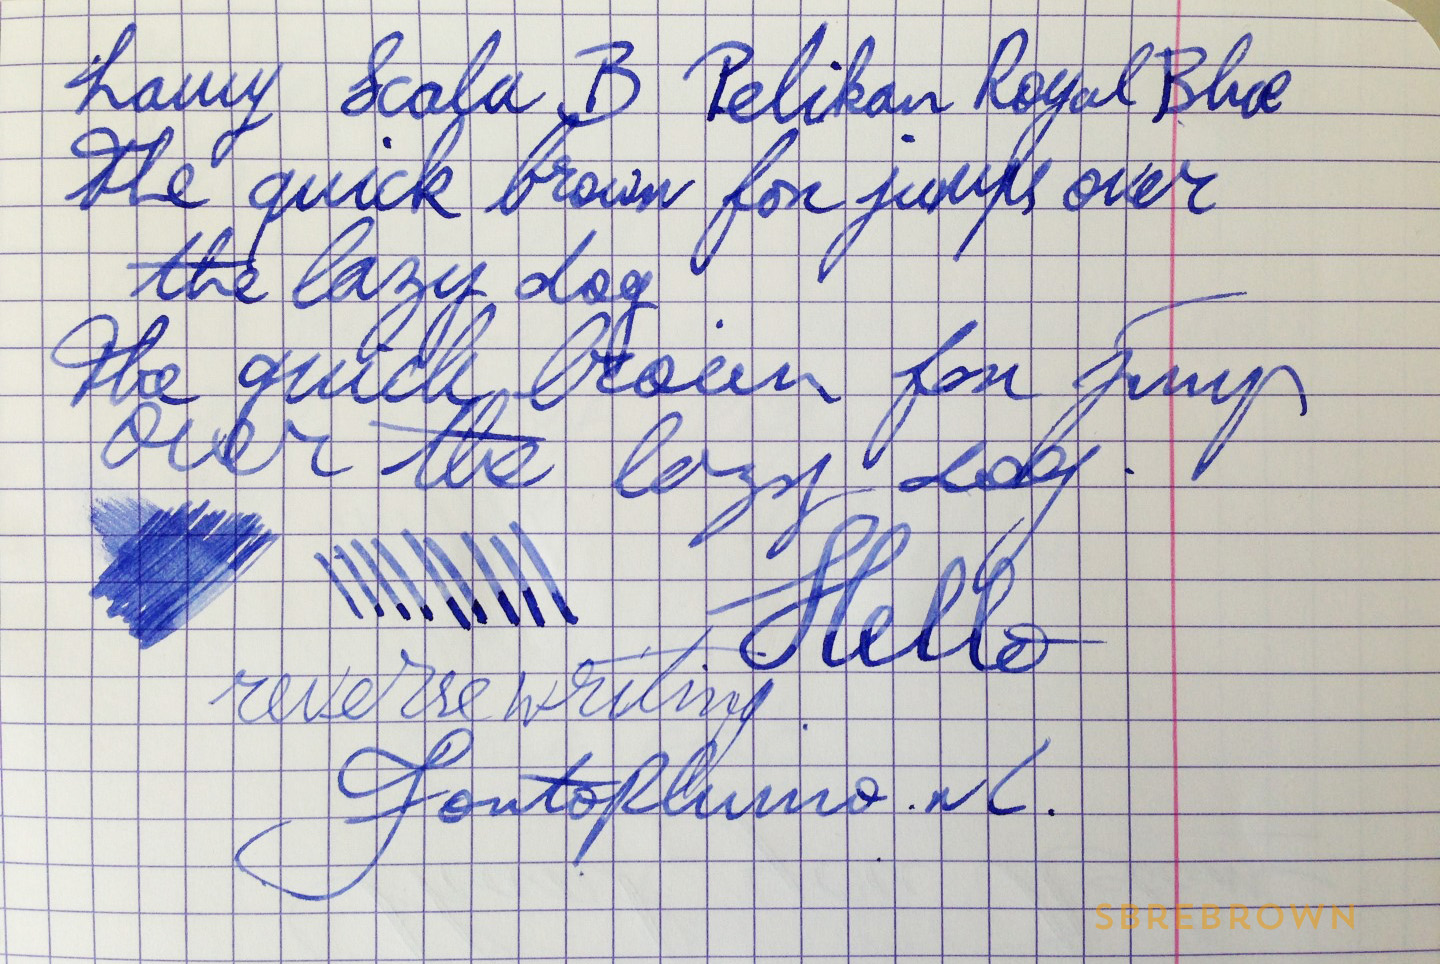 Lamy Scala B Pelikan Royal Blue
The quick brown fox jumps over
the lazy dog
The quick brown fox jump
over the lazy dog.
Hello
reverse writing.
Fontoplumo.nl.
SBREBROWN